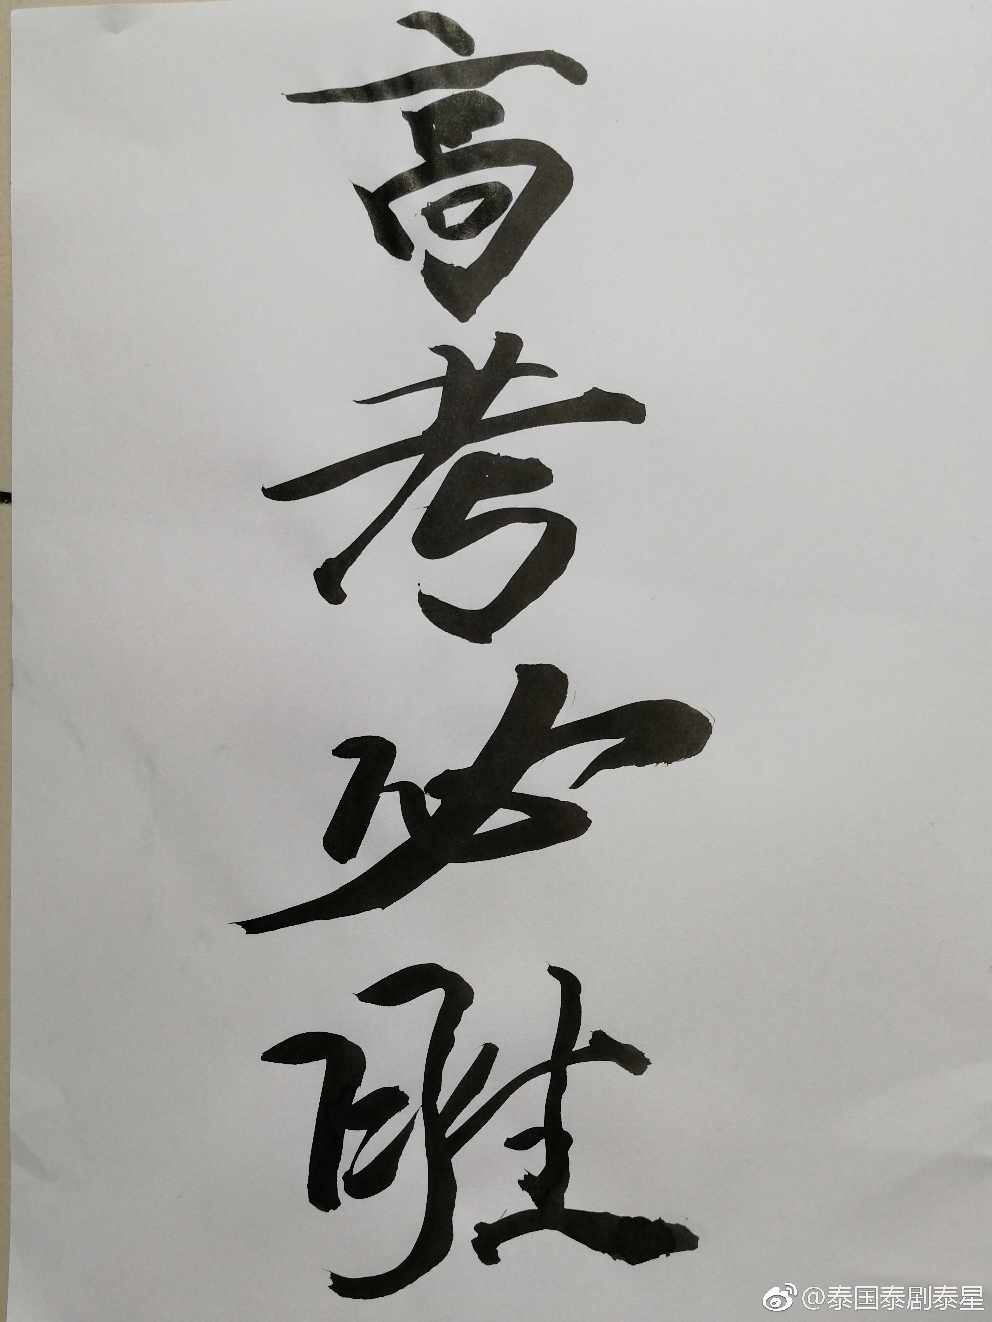 高考必胜
@泰国泰剧泰星